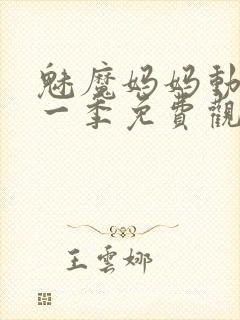 魅魔妈妈動
一季免費觀
王雲娜